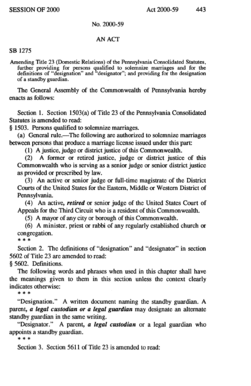 SESSION OF 2000 Act 2000-59 443
No. 2000-59
AN ACT
SB 1275
Amending Title 23 (Domestic Relations) of the Pennsylvania Consolidated Statutes,
further providing for persons qualified to solemnize marriages and for the
definitions of "designation" and "designator"; and providing for the designation
of a standby guardian.
The General Assembly of the Commonwealth of Pennsylvania hereby
enacts as follows:
Section 1. Section 1503(a) of Title 23 of the Pennsylvania Consolidated
Statutes is amended to read:
§ 1503. Persons qualified to solemnize marriages.
(a) General rule.—The following are authorized to solemnize marriages
between persons that produce a marriage license issued under this part:
(1) A justice, judge or district justice of this Commonwealth.
(2) A former or retired justice, judge or district justice of this
Commonwealth who is serving as a senior judge or senior district justice
as provided or prescribed by law.
(3) An active or senior judge or full-time magistrate of the District
Courts of the United States for the Eastern, Middle or Western District of
Pennsylvania.
(4) An active, retired or senior judge of the United States Court of
Appeals for the Third Circuit who is a resident of this Commonwealth.
(5) A mayor of any city or borough of this Commonwealth.
(6) A minister, priest or rabbi of any regularly established church or
congregation.
* * *
Section 2. The definitions of "designation" and "designator" in section
5602 of Title 23 are amended to read:
§ 5602. Definitions.
The following words and phrases when used in this chapter shall have
the meanings given to them in this section unless the context clearly
indicates otherwise:
* * *
"Designation." A written document naming the standby guardian. A
parent, a legal custodian or a legal guardian may designate an alternate
standby guardian in the same writing.
"Designator." A parent, a legal custodian or a legal guardian who
appoints a standby guardian.
* * *
Section 3. Section 5611 of Title 23 is amended to read: